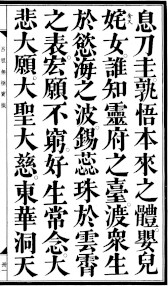 息刀圭孰悟本來之體嬰兒
姹女誰知靈府之臺渡衆生
於慾海之波錫蕊珠於雲霄
之表宏願不窮好生常念大
悲大願大聖大慈東華洞天